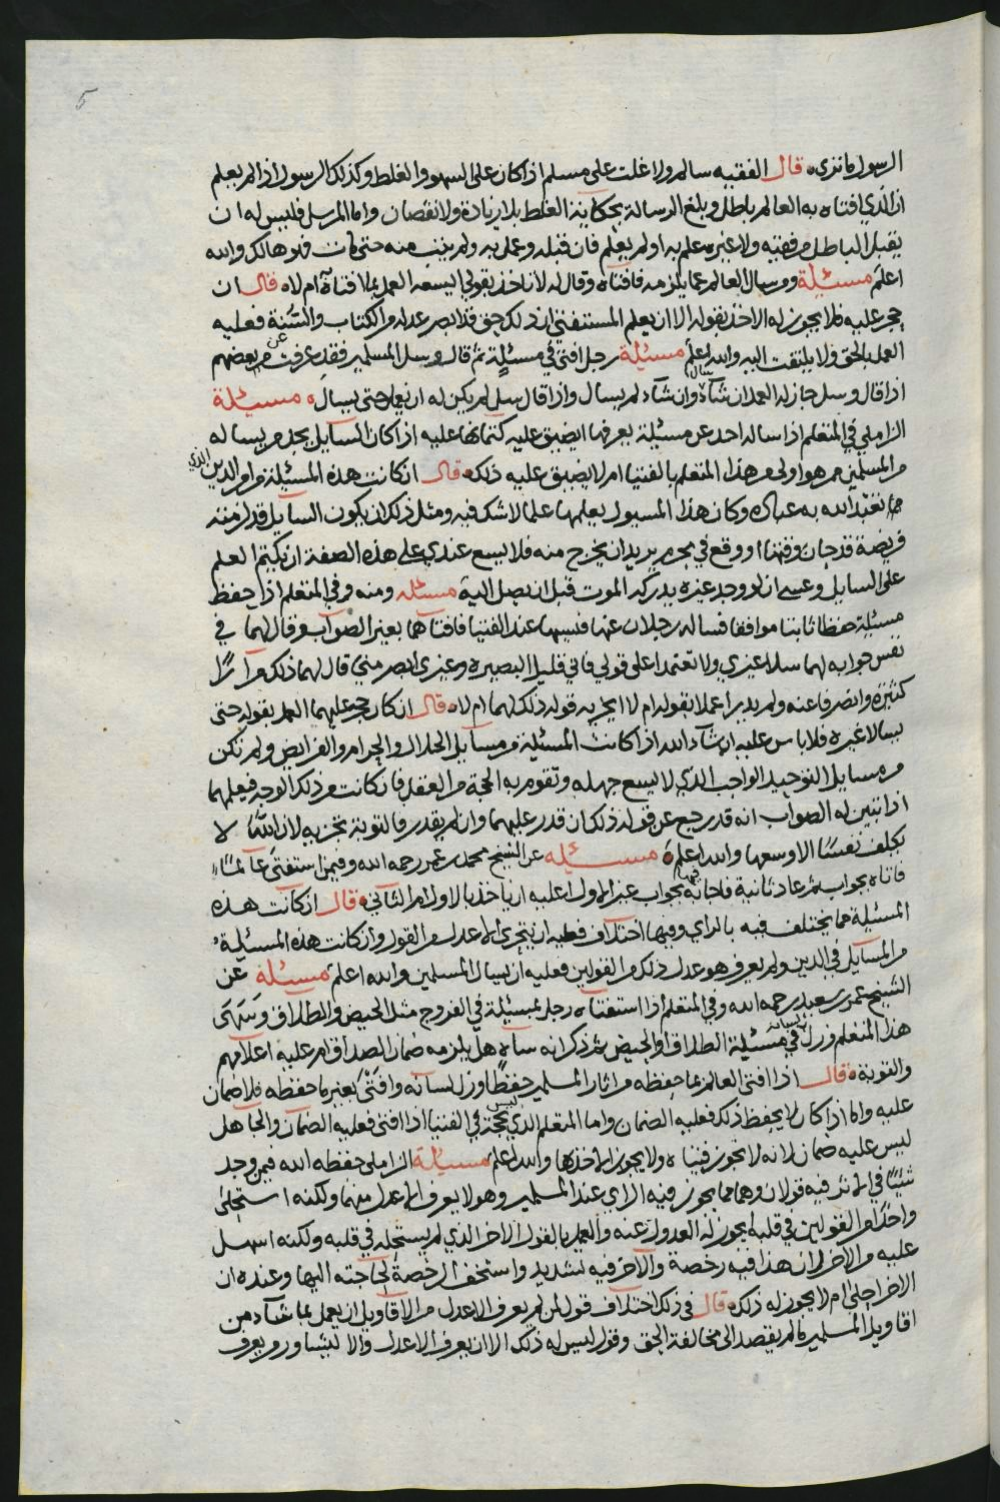 5
الرسول ما نري قال الفقيه سالم ولا غلت على مسلم اذا كان على السهو والغلط وكذلك الرسول اذا لم يعلم
ان الذي افتاه به العالم باطل وبلغ الرسالة بحكاية الغلط بلا زيادة ولا نقصان واما المرسل فليس له ان
يقبل الباطل من فقيه ولا غيره علم به او لم يعلم فان قبله وعمل به ولم يتب منه حتى مات فهو هالك والله
اعلم مسئلة ومن سال العالم عما يلزمه فافتاه وقال له لا تاخذ بقولي ايسعه العمل بما افتاه ام لا قال ان
حجر عليه فلا يجوز له الاخذ بقوله الا ان يعلم المستفتي ان ذلك حق قد ابصر عدله من الكتاب والسنة فعليه
العمل بالحق ولا يلتفت اليه والله اعلم مسئلة رجل افتى في مسئلة ثم قال وسل المسلمين فقد عرفت عن بعضهم
اذا قال وسل جاز له العمل ان شاء سال وان شاء لم يسال واذا قال سل لم يكن له ان يعمل حتى يسال مسئلة
الزاملي في المتعلم اذا ساله احد عن مسئلة يعرفها ايضيق عليه كتمانها عليه اذا كان السايل يجد من يساله
من المسلمين من هو اولى من هذا المتعلم بالفتيا ام لا يضيق عليه ذلك قال ان كانت هذه المسئلة من امر الدين الذي
مما تعبد الله به عباده وكان هذا المسيول يعلمها علما لا شك فيه ومثل ذلك ان يكون السايل قد لزمته
فريضة قد حان وقتها او وقع في محرم يريد ان يخرج منه فلا يسع عندي على هذه الصفة ان يكتم العلم
على السايل وعسى ان لو وجد غيره يدركه الموت قبل ان يصل اليه مسئله ومنه وفي المتعلم اذا حفظ
مسئلة حفظا ثابتا موافقا فساله رجلان عنها فنسيها عند الفتيا فافتاهما بغير الصواب وقال لهما في
نفس جوابه لهما سلا غيري ولا تعتمدا على قولي فاني قليل البصيرة وغيري ابصر مني قال لهما ذلك مرارًا
كثيرة وانصرفا عنه ولم يدر اعملا بقوله ام لا ايجزيه قوله ذلك لهما ام لا قال ان كان حجر عليهما العمل بقوله حتى
يسالا غيره فلا باس عليه ان شاء الله اذا كانت المسئلة من مسايل الحلال والحرام والفرايض ولم تكن
من مسايل التوحيد الواجب الذي لا يسع جهله وتقوم به الحجة من العقل فان كانت من ذلك الوجه فيعلمهما
اذا تبين له الصواب انه قد رجع عن قوله ذلك ان قدر عليهما وان لم يقدر فالتوبة تجزيه لان الله لا
يكلف نفسًا الا وسعها والله اعلم مسئله عن الشيخ محمد بن عمر رحمه الله وفيمن استفتى عالما
فاتاه بجواب ثم عاد ثانية فاجابه فيها بجواب غير الاول اعليه ان ياخذ بالاول ام الثاني قال ان كانت هذه
المسئلة مما يختلف فيه بالراي وفيها اختلاف فعليه ان يتحرى الاعدل من القول وان كانت هذه المسئلة
من المسايل في الدين ولم يعرف هو عدل ذلك من القولين فعليه ان يسال المسلمين والله اعلم مسئلة عن
الشيخ عمر بن سعيد رحمه الله وفي المتعلم اذا استفتاه رجل بمسئلة في الفروج مثل الحيض والطلاق
هذا المتعلم وزل لسانه في مسئلة الطلاق او الحيض ثم ذكر انه ساه هل يلزمه ضمان الصداق ام عليه اعلامهم
والتوبة قال اذا افتى العالم بما حفظه من اثار المسلمين حفظًا وزل لسانه وافتى بغير ما حفظه فلا ضمان
عليه واما اذا كان لا يحفظ ذلك فعليه الضمان واما المتعلم الذي ليس بحجة في الفتيا اذا افتى فعليه الضمان والجاهل
ليس عليه ضمان لانه لا تجوز فتياه ولا يجوز الاخذ بها والله اعلم مسئلة الزاملي حفظه الله فيمن وجد
شيئًا في الاثر فيه قولان وهما مما يجوز فيه الراي عند المسلمين وهو لا يعرف الاعدل منهما ولكنه استحلى
واحدًا من القولين في قلبه ايجوز له العدول عنه والعمل بالقول الاخر الذي لم يستحله في قلبه ولكنه اسهل
عليه من الاخر لان هذا فيه رخصة والاخر فيه تشديد واستخف الرخصة لحاجته اليها وعنده ان
الاخر احلى ام لا يجوز له ذلك قال في ذلك اختلاف قول لمن لم يعرف الاعدل من الاقاويل ان يعمل بما شاء من
اقاويل المسلمين ما لم يقصد الى مخالفة الحق وقول ليس له ذلك الا ان يعرف الاعدل والا ليشاور من يعرف